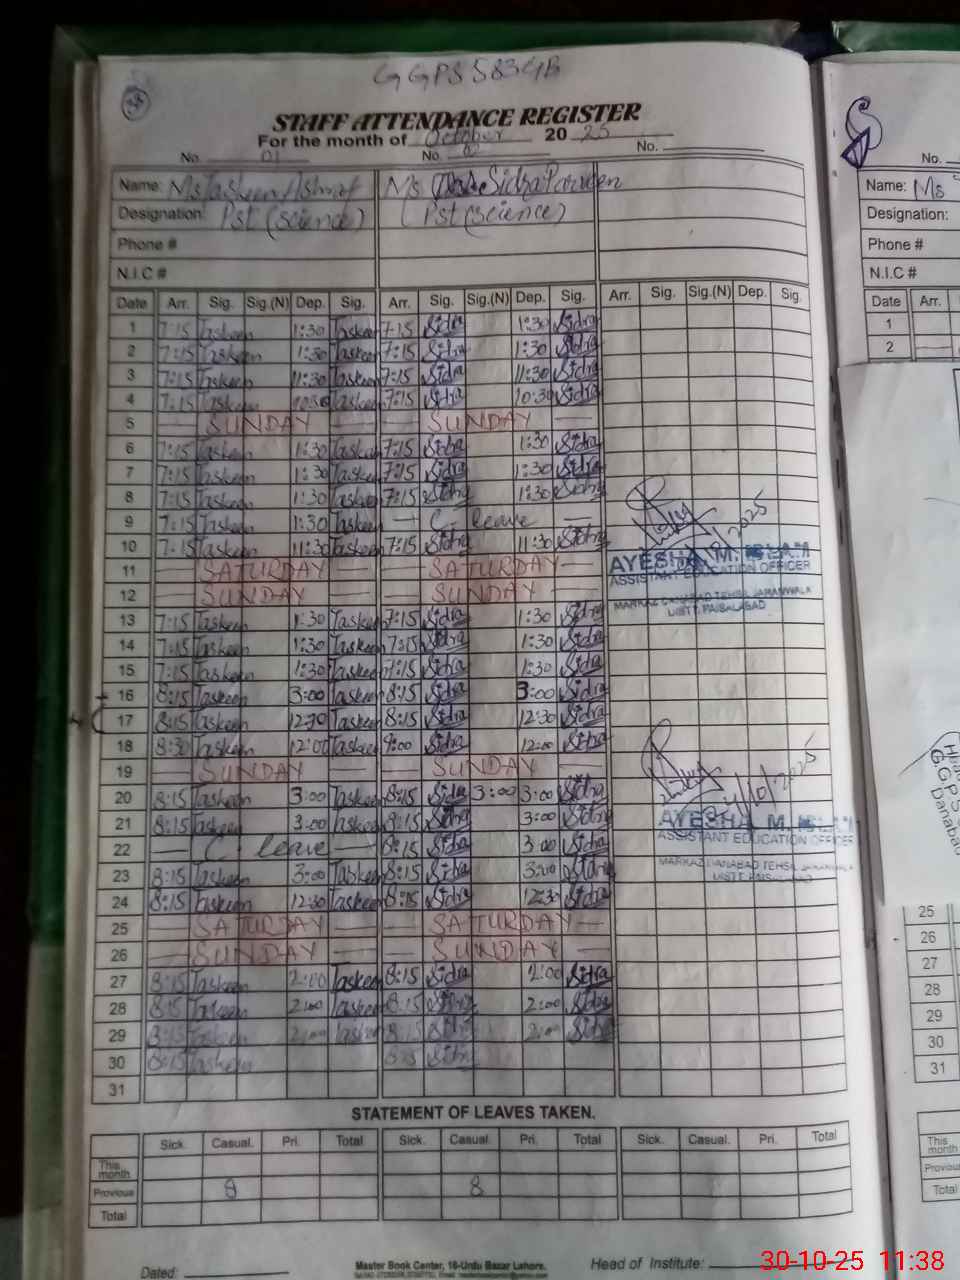 GGPS 583GB
STAFF ATTENDANCE REGISTER
For the month of October 2025
No. 01 No. 02 No.
Name: Ms Taskeen Ashraf Ms Sidra Parveen
Designation: Pst (science) Pst (science)
Phone #
N.I.C #
Date Arr. Sig. Sig.(N) Dep. Sig. Arr. Sig. Sig.(N) Dep. Sig. Arr. Sig. Sig.(N) Dep. Sig.
1 7:15 Taskeen 1:30 Taskeen 7:15 Sidra 1:30 Sidra
2 7:15 Taskeen 1:30 Taskeen 7:15 Sidra 1:30 Sidra
3 7:15 Taskeen 11:30 Taskeen 7:15 Sidra 11:30 Sidra
4 7:15 Taskeen 10:30 Taskeen 7:15 Sidra 10:30 Sidra
5 SUNDAY SUNDAY
6 7:15 Taskeen 1:30 Taskeen 7:15 Sidra 1:30 Sidra
7 7:15 Taskeen 1:30 Taskeen 7:15 Sidra 1:30 Sidra
8 7:15 Taskeen 1:30 Taskeen 7:15 Sidra 1:30 Sidra
9 7:15 Taskeen 1:30 Taskeen — C. leave —
10 7:15 Taskeen 11:30 Taskeen 7:15 Sidra 11:30 Sidra
11 — SATURDAY — — SATURDAY —
12 — SUNDAY — — SUNDAY —
13 7:15 Taskeen 1:30 Taskeen 7:15 Sidra 1:30 Sidra
14 7:15 Taskeen 1:30 Taskeen 7:15 Sidra 1:30 Sidra
15 7:15 Taskeen 1:30 Taskeen 7:15 Sidra 1:30 Sidra
16 8:15 Taskeen 3:00 Taskeen 8:15 Sidra 3:00 Sidra
17 8:15 Taskeen 12:30 Taskeen 8:15 Sidra 12:30 Sidra
18 8:30 Taskeen 12:00 Taskeen 9:00 Sidra 12:00 Sidra
19 — SUNDAY — — SUNDAY —
20 8:15 Taskeen 3:00 Taskeen 8:15 Sidra 3:00 3:00 Sidra
21 8:15 Taskeen 3:00 Taskeen 8:15 Sidra 3:00 Sidra
22 — C. leave — 8:15 Sidra 3:00 Sidra
23 8:15 Taskeen 3:00 Taskeen 8:15 Sidra 3:00 Sidra
24 8:15 Taskeen 12:30 Taskeen 8:15 Sidra 12:30 Sidra
25 — SATURDAY — — SATURDAY —
26 — SUNDAY — — SUNDAY —
27 8:15 Taskeen 2:00 Taskeen 8:15 Sidra 2:00 Sidra
28 8:15 Taskeen 2:00 Taskeen 8:15 Sidra 2:00 Sidra
29 8:15 Taskeen 2:00 Taskeen 8:15 Sidra 2:00 Sidra
30 8:15 Taskeen 8:15 Sidra
31
AYESHA M. ISLAM
ASSISTANT EDUCATION OFFICER
MARKAZ DANABAD TEHSIL JARANWALA
DISTT. FAISALABAD
/10/2025
AYESHA M. ISLAM
ASSISTANT EDUCATION OFFICER
MARKAZ DANABAD TEHSIL JARANWALA
DISTT. FAISALABAD
STATEMENT OF LEAVES TAKEN.
Sick. Casual. Pri. Total Sick. Casual. Pri. Total Sick. Casual. Pri. Total
This month
Previous 8 8
Total
Dated:
Master Book Center, 16-Urdu Bazar Lahore.
Head of Institute:
No.
Name: Ms
Designation:
Phone #
N.I.C #
Date Arr.
1
2
GGPS
Danabad
25
26
27
28
29
30
31
This month
Previous
Total
30-10-25 11:38